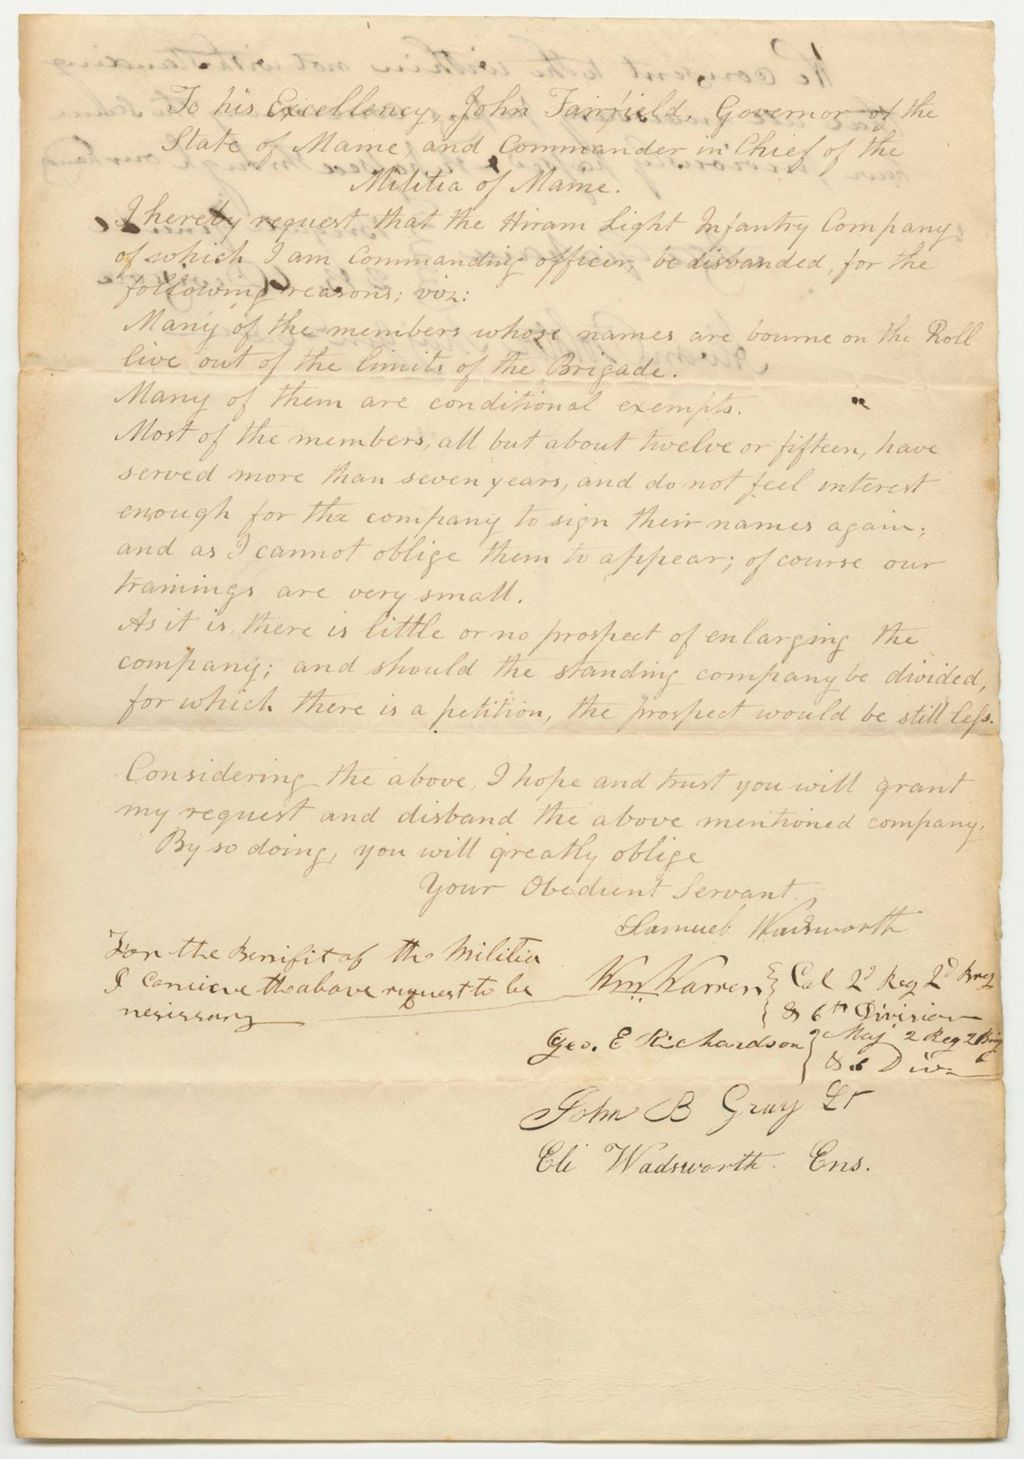 To his Excellency, John Fairfield, Governor of the
State of Maine and Commander in Chief of the
Militia of Maine.
I hereby request that the Hiram Light Infantry Company
of which I am Commanding officer, be disbanded, for the
following reasons; viz:
Many of the members whose names are bourne on the Roll
live out of the limits of the Brigade.
Many of them are conditional exempts.
Most of the members, all but about twelve or fifteen, have
served more than seven years, and do not feel interest
enough for the company to sign their names again;
and as I cannot oblige them to appear; of course our
trainings are very small.
As it is, there is little or no prospect of enlarging the
company; and should the standing company be divided,
for which there is a petition, the prospect would be still less.
Considering the above, I hope and trust you will grant
my request and disband the above mentioned company.
By so doing, you will greatly oblige
Your Obedient Servant,
Samuel Wadsworth
For the Benifit of the Militia
I concieve the above request to be
nesissary
Wm. Warren } Col 2d Reg 2d Brig
& 6th Division
Geo. E Richardson } Maj 2 Reg 2 Brig
& 6 Div
John B Gray Lt
Eli Wadsworth. Ens.